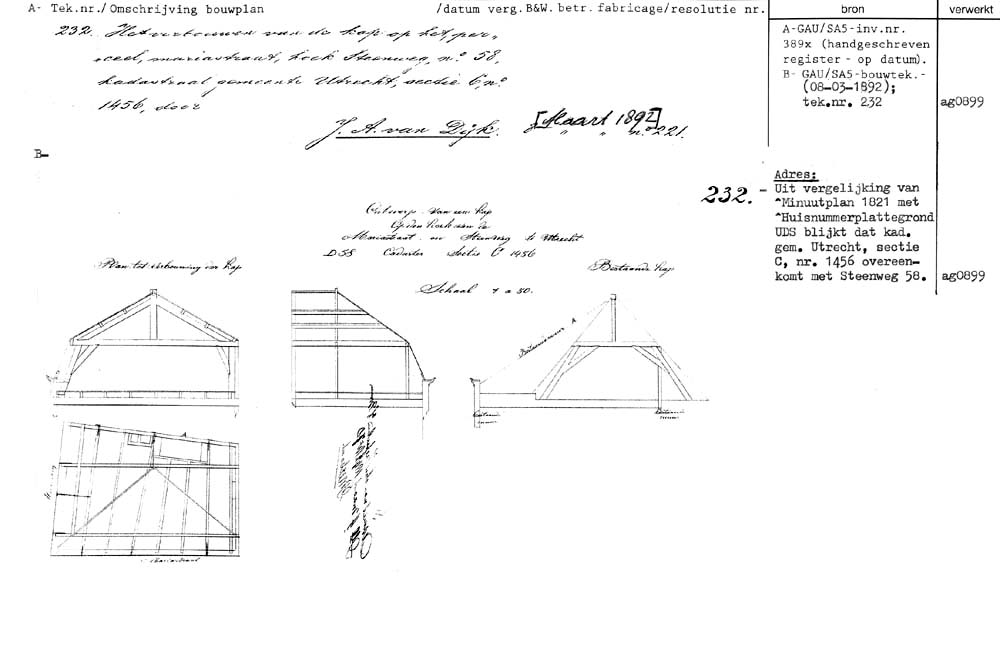 A- Tek.nr./Omschrijving bouwplan /datum verg.B&W.betr.fabricage/resolutie nr. bron verwerkt
232. Het verbouwen van de kap op het per-
ceel, mariastraat, hoek Steenweg, no. 58,
kadastraal gemeente Utrecht, sectie C, no.
1456, door
J. A. van Dijk. [Maart 1892]
" " n. 221.
A-GAU/SA5-inv.nr.
389x (handgeschreven
register - op datum).
B- GAU/SA5-bouwtek.-
(08-03-1892);
tek.nr. 232 ag0899
B-
232. -
Adres:
Uit vergelijking van
^Minuutplan 1821 met
^Huisnummerplattegrond
UDS blijkt dat kad.
gem. Utrecht, sectie
C, nr. 1456 overeen-
komt met Steenweg 58. ag0899
Ontwerp van een kap
Op den hoek van de
Mariastraat en Steenweg te Utrecht
D 58 Cadaster Sectie C 1456
Schaal 1 a 50.
Plan tot verbouwing der kap
Bestaande kap
A
A
Mariastraat